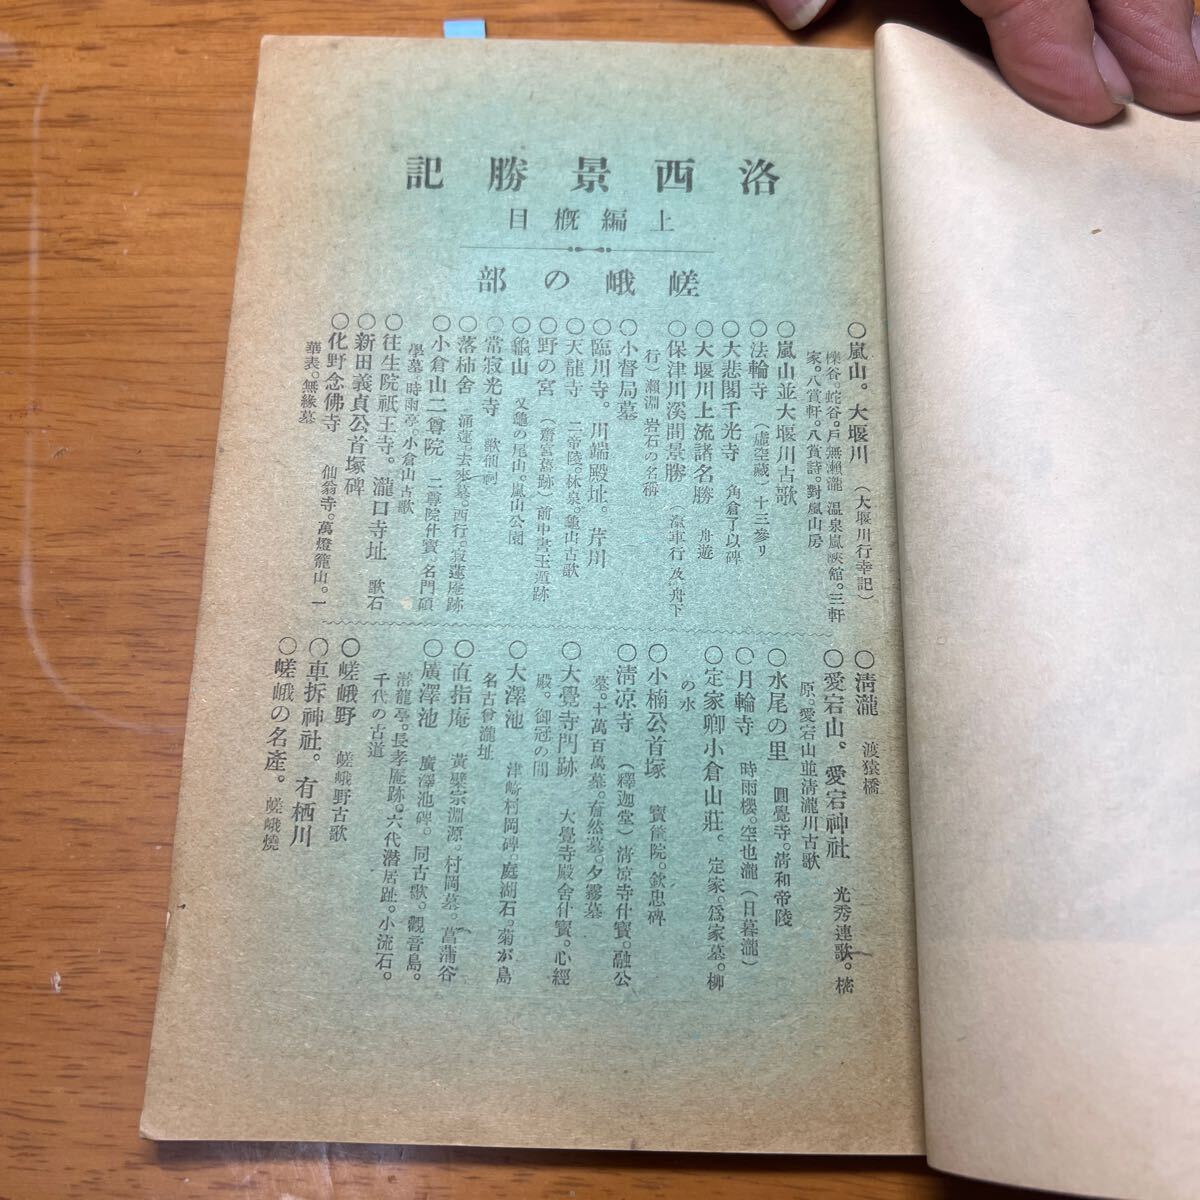 洛西景勝記
上編概目
嵯峨の部
○嵐山。大堰川（大堰川行幸記）
櫟谷。蛇谷。戸無瀬瀧 溫泉嵐峽館。三軒
家。八賞軒。八賞詩。對嵐山房
○嵐山並大堰川古歌
○法輪寺（虛空藏）十三參り
○大悲閣千光寺 角倉了以碑
○大堰川上流諸名勝 舟遊
○保津川溪間景勝（汽車行 及 舟下
行）瀨淵 岩石の名稱
○小督局墓
○臨川寺。川端殿址。芹川
○天龍寺 二帝陵。林泉。龜山古歌
○野の宮（齋宮舊跡）前中書王遁跡
○龜山 又龜の尾山。嵐山公園
○常寂光寺 歌仙祠
○落柿舍 涌蓮去來墓。西行。寂蓮庵跡
○小倉山二尊院 二尊院什寶、名門碩
學墓、時雨亭。小倉山古歌
○往生院祇王寺。瀧口寺址 歌石
○新田義貞公首塚碑
○化野念佛寺 仙翁寺。萬燈籠山。一
華表。無緣墓
○淸瀧 渡猿橋
○愛宕山。愛宕神社 光秀連歌。樒
原。愛宕山並淸瀧川古歌
○水尾の里 圓覺寺。淸和帝陵
○月輪寺 時雨櫻。空也瀧（日暮瀧）
○定家卿小倉山莊。定家。爲家墓。柳
の水
○小楠公首塚 寶筐院。欽忠碑
○淸凉寺（釋迦堂）淸凉寺什寶。融公
墓。十萬百萬墓。奝然墓。夕霧墓
○大覺寺門跡 大覺寺殿舍什寶。心經
殿。御冠の間
○大澤池 津崎村岡碑。庭湖石。菊が島
名古曾瀧址
○直指庵 黃檗宗淵源。村岡墓。菖蒲谷
○廣澤池 廣澤池碑。同古歌。觀音島。
潜龍亭。長孝庵跡。六代潜居趾。小流石。
千代の古道
○嵯峨野 嵯峨野古歌
○車折神社。有栖川
○嵯峨の名產。嵯峨燒